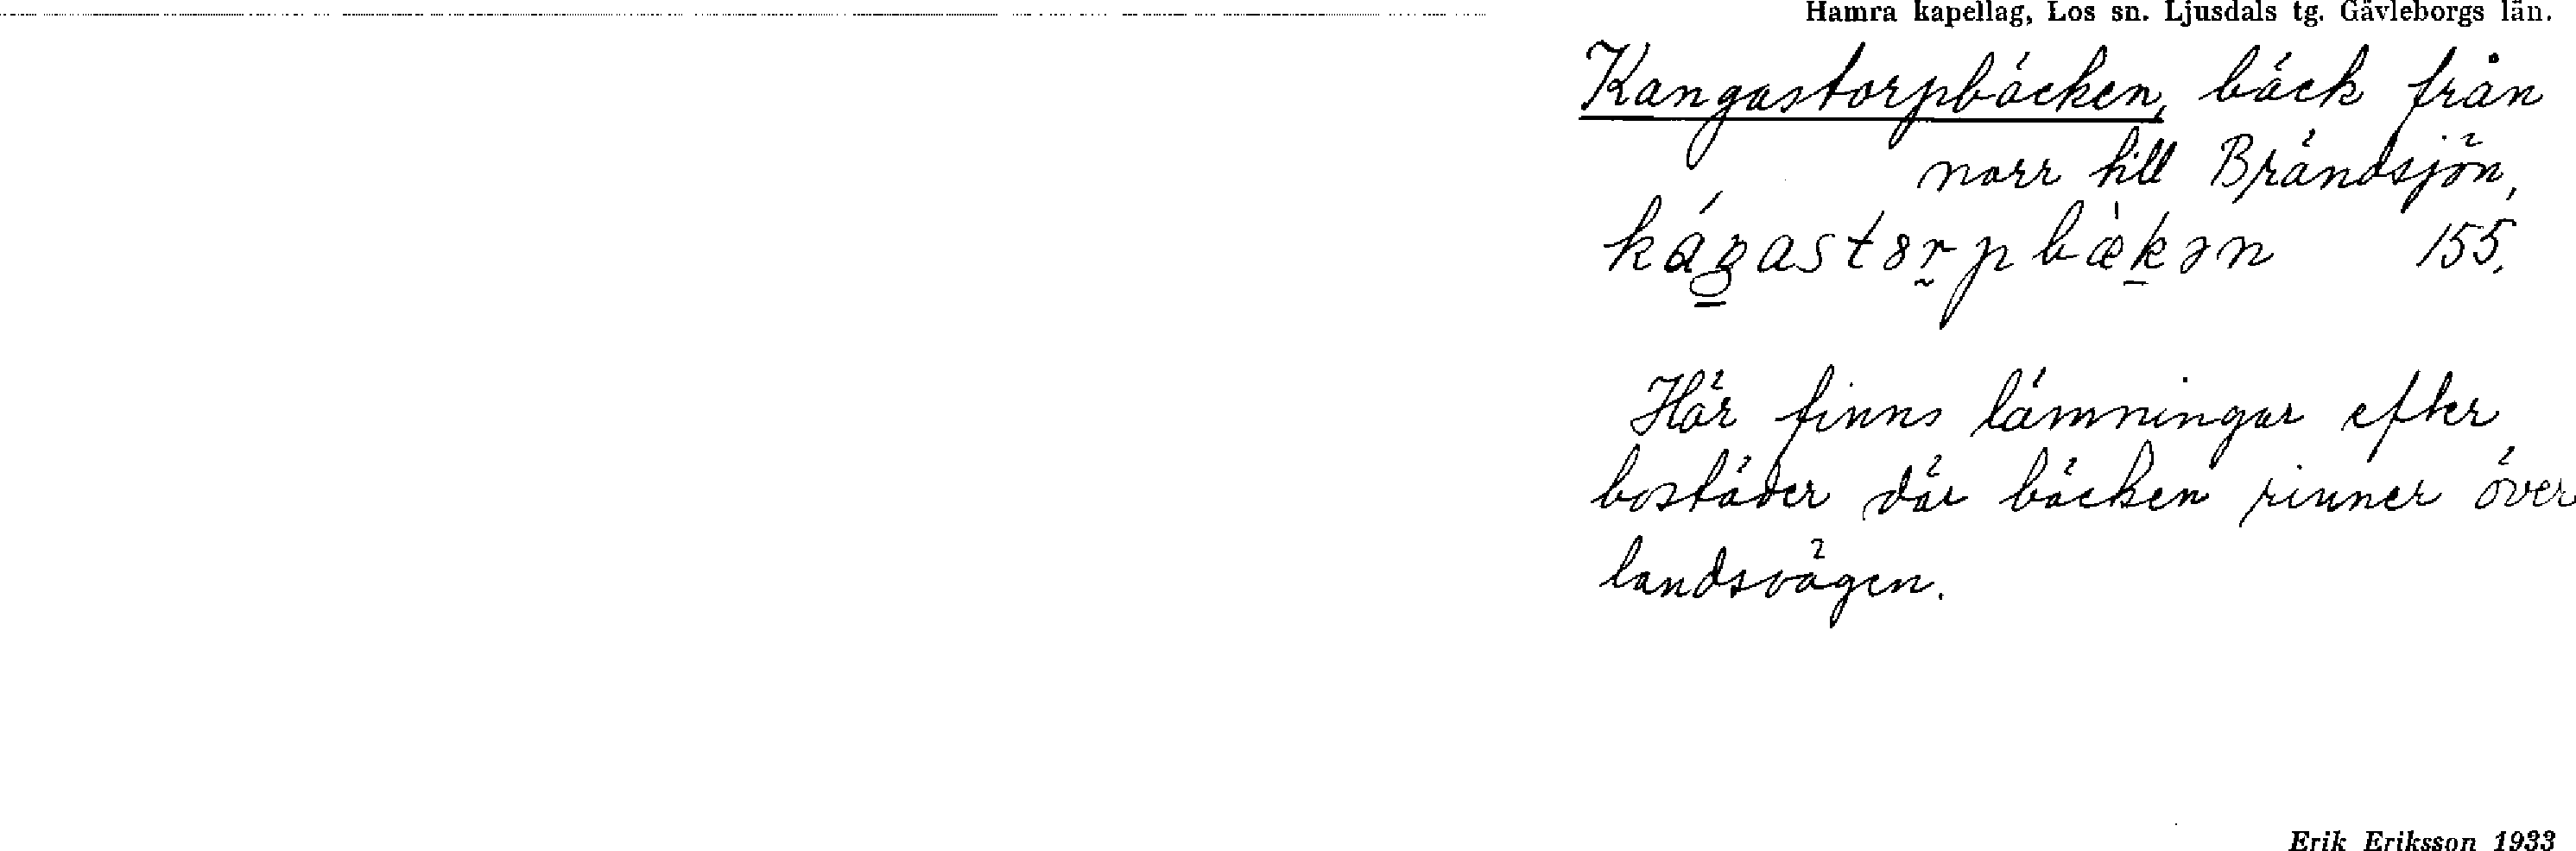 Hamra kapellag, Los sn. Ljusdals tg. Gävleborgs län.
Kangastorpbäcken, bäck från
norr till Brändsjön,
155.
Här finns lämningar efter
bostäder där bäcken rinner över
landsvägen.
Erik Eriksson 1933